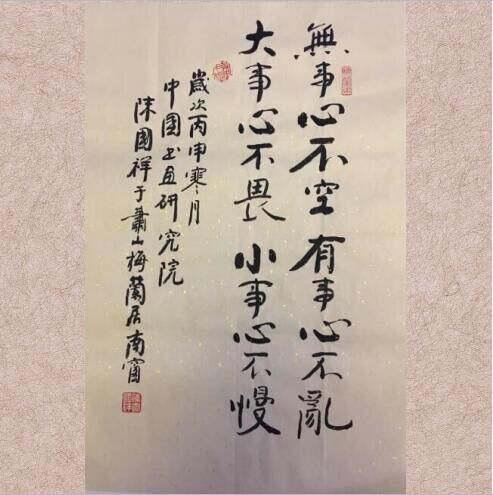 無事心不空 有事心不亂
大事心不畏 小事心不慢
歲次丙申寒月
中國书画研究院
陈國祥于蕭山梅蘭居南窗